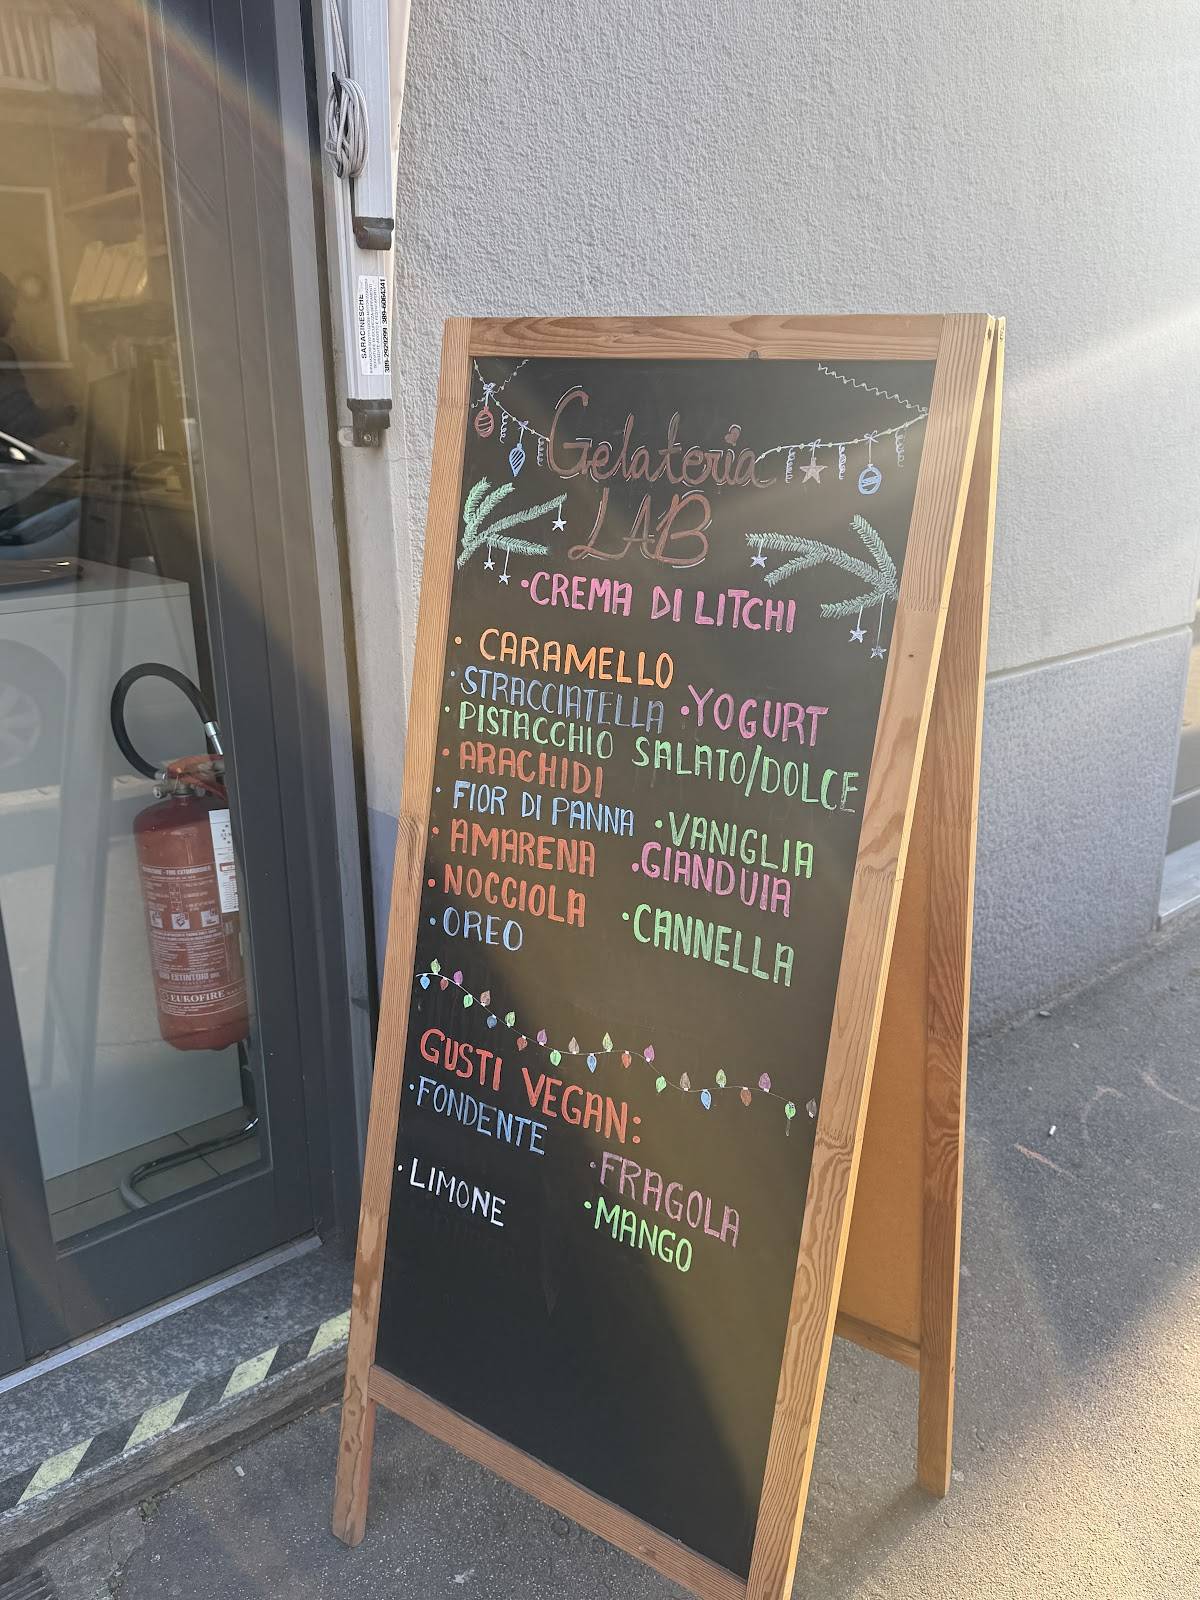 SARACINESCHE
389-2929299 389-6064341
Gelateria
LAB
·CREMA DI LITCHI
· CARAMELLO
·STRACCIATELLA ·YOGURT
·PISTACCHIO SALATO/DOLCE
·ARACHIDI
·FIOR DI PANNA ·VANIGLIA
·AMARENA ·GIANDUIA
·NOCCIOLA ·CANNELLA
·OREO
GUSTI VEGAN:
·FONDENTE
·FRAGOLA
·LIMONE
·MANGO
EUROFIRE